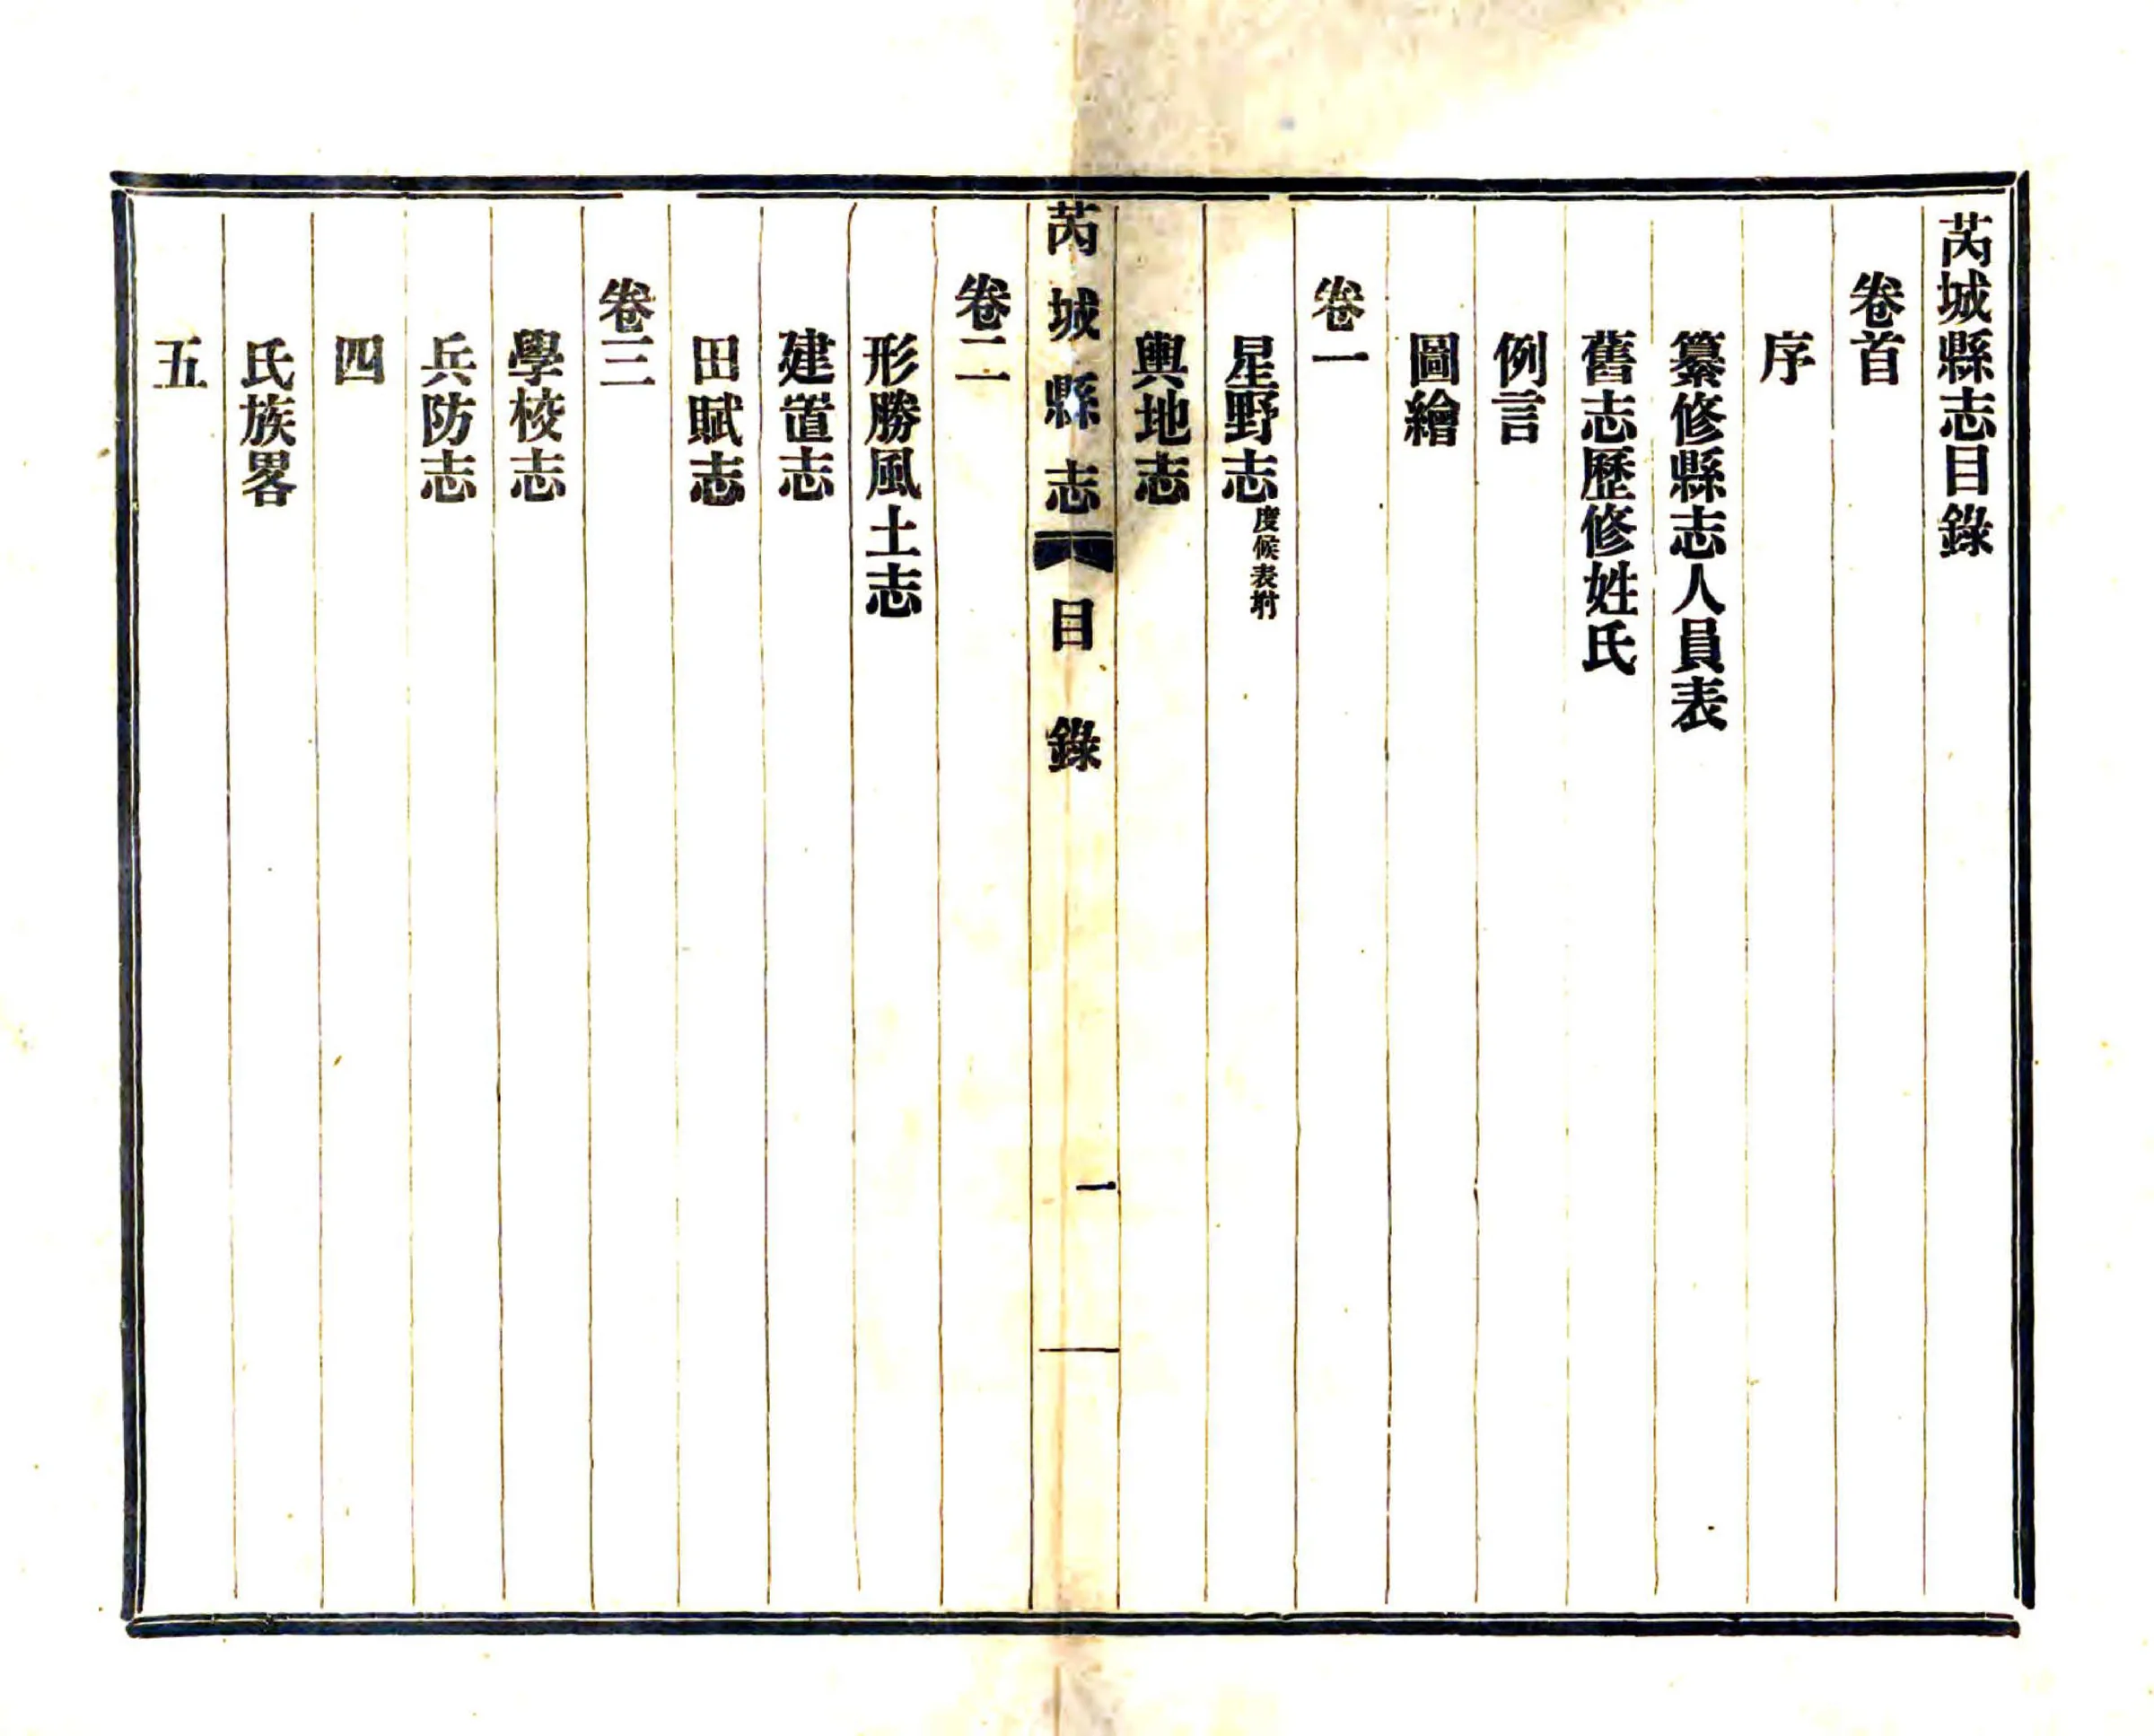 芮城縣志目錄
卷首
序
纂修縣志人員表
舊志歷修姓氏
例言
圖繪
卷一
星野志度候表坿
輿地志
芮城縣志 目錄 一
卷二
形勝風土志
建置志
田賦志
卷三
學校志
兵防志
四
氏族畧
五